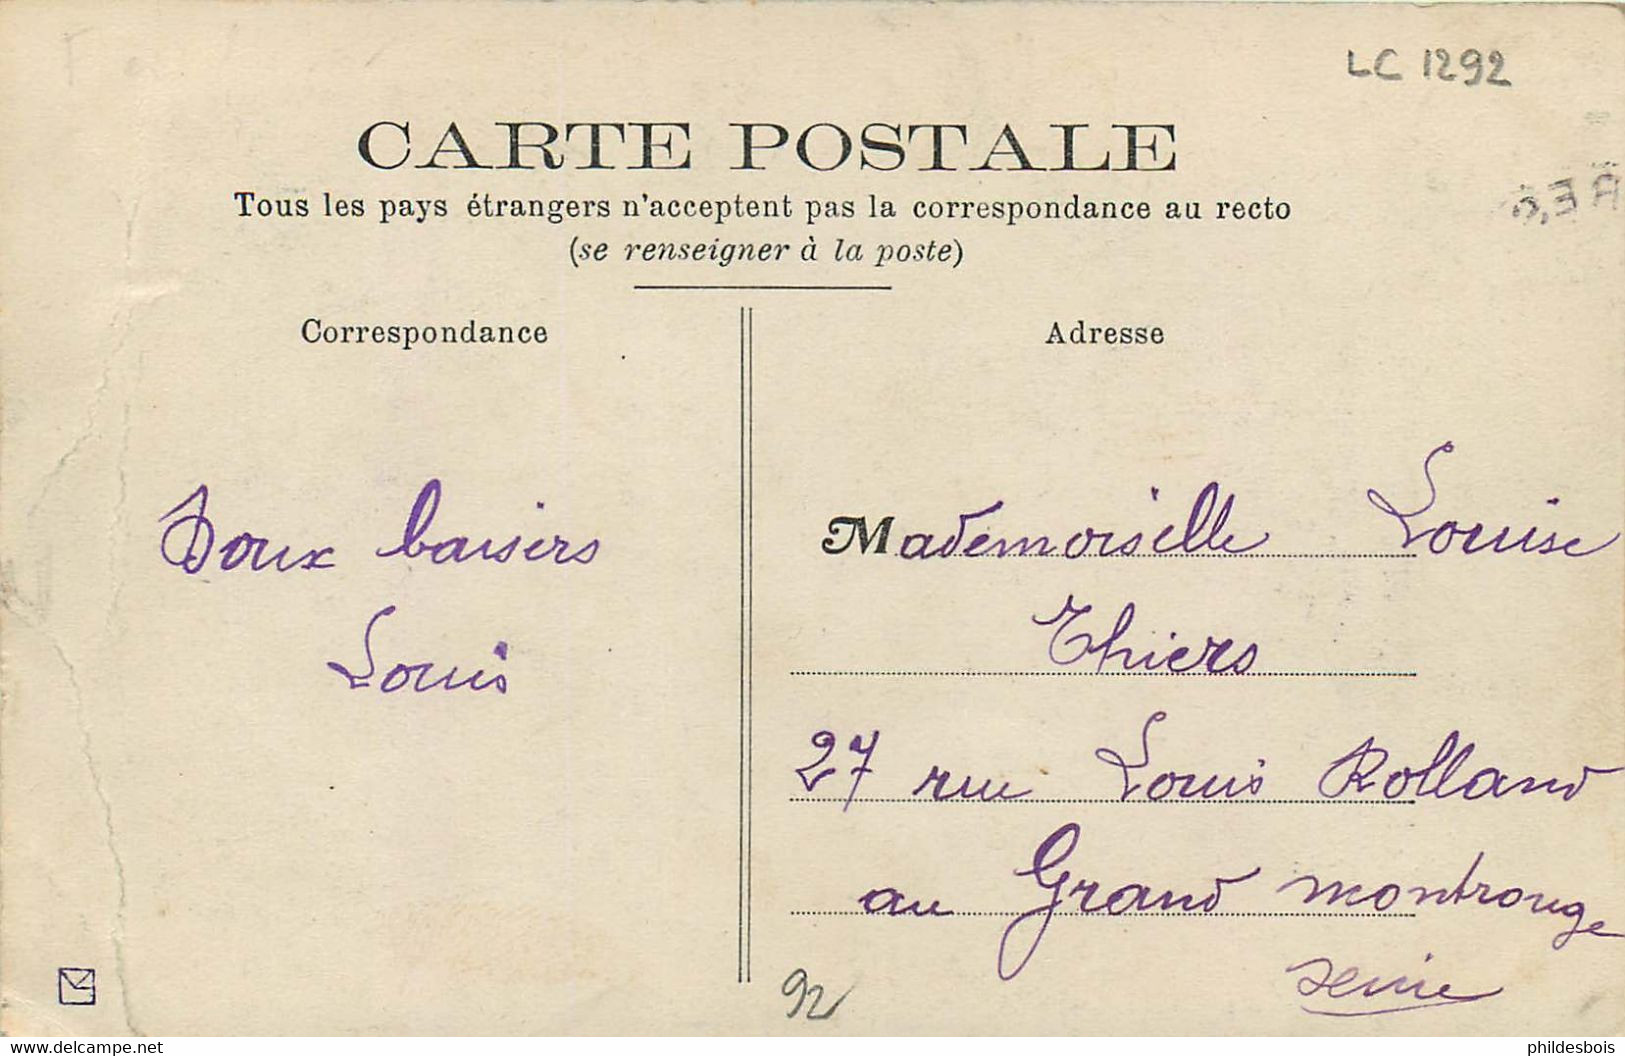 LC 1292
CARTE POSTALE
Tous les pays étrangers n'acceptent pas la correspondance au recto
(se renseigner à la poste)
Correspondance
Doux baisers
Louis
Adresse
Mademoiselle Louise
Thiers
27 rue Louis Rolland
au Grand montrouge
seine
92
www.delcampe.net
phildesbois